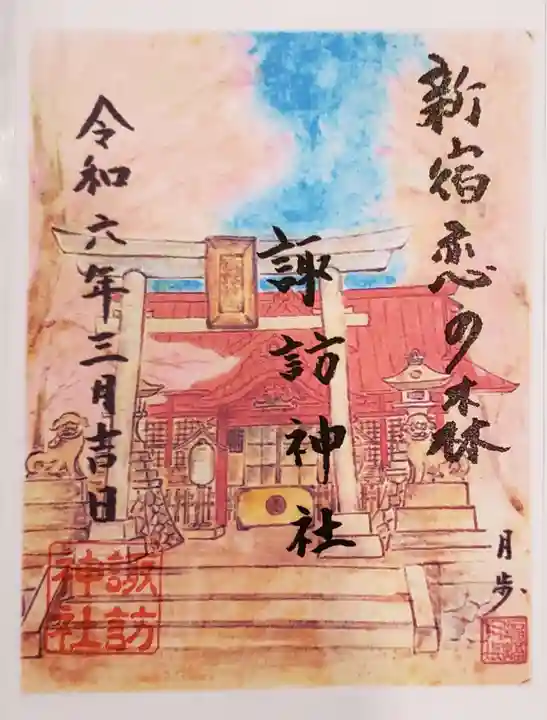 新宿恋の森
諏訪神社
令和六年三月吉日
月歩
諏訪
神社